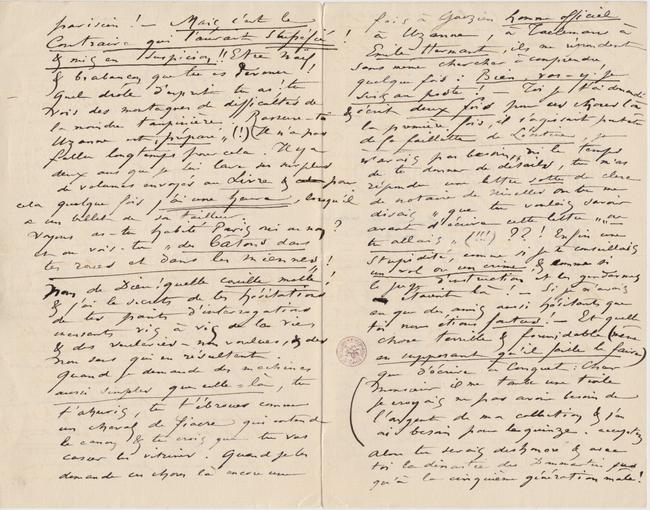 parisien ! – Mais c'est le
contraire qui t'aurait stupéfié !
& mis en suspicion !! Etre naïf
& brabançon que tu es devenu !
Quel drôle d'esprit tu as ; tu
vois des montagnes de difficultés de
la moindre taupinière. Rassure-toi
Uzanne est „préparé" (!) (Il n'a pas
fallu longtemps pour cela. Il y a
deux ans que je lui lave son surplus
de volumes envoyés au Livre & pour
cela quelque fois j'ai une heure, lorsqu'il
a un billet de son tailleur.
Voyons as-tu habité Paris oui ou non ?
et où vois-tu „des bâtons dans
tes roues et dans les miennes" !
Nom de Dieu ! quelle couille molle !
& j'ai le secret de tes hésitations
de tes points d'interrogations
incessants vis à vis de la vie
& des vouloirs – non voulus, & des
non sens qui en résultent.
Quand je demande des machines
aussi simples que celle-là, tu
t'ahuris, tu t'ébroues comme
un cheval de fiacre qui entend
le canon & tu crois que tu vas
casser les vitres. Quand je
demande ces choses là encore une
fois à Gouzien homme officiel
à Uzanne, à Taelemans à
Emile Hermant, ils me rendent
sans même chercher à comprendre
quelque fois : Bien, vas-y, je
suis au poste ! – Toi je t'ai demandé
& écrit deux fois pour ces choses là
la première fois, il s'agissait
de la faillite de je
n'avais pas besoin, ni le temps
de te donner de détails, tu m'as
répondu une lettre sotte de clerc
de notaire de Nivelles où tu me
disais „que tu voulais savoir
avant d'écrire cette lettre „où
tu allais" (!!!) ??! Enfin une
stupidité, comme si je te conseillais
un vol ou un crime & comme si
le juge d'instruction et les gendarmes
étaient là ... Si je n'avais
eu que des amis aussi hésitants que
toi nous étions foutus ! – Et quelle
chose terrible & formidable (même
en supposant qu'il faille le faire)
que d'écrire à Conquet : Cher
Monsieur il me tarde une toile
je croyais ne pas avoir besoin de
l'argent de ma collection & j'en
ai besoin pour le quinze. acceptez
Alors tu serais déshonoré & avec
toi la dinastie des Dommartin jus
qu'à la cinquième génération mâle !